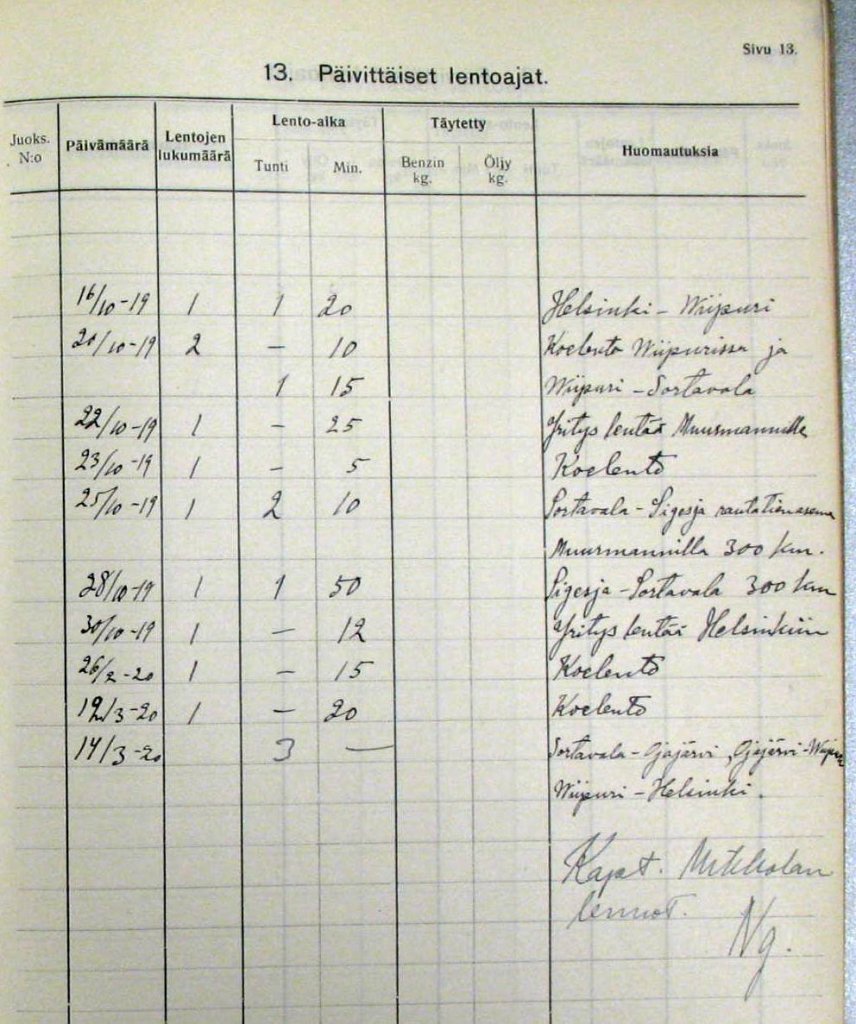 Sivu 13.
13. Päivittäiset lentoajat.
Juoks. N:o Päivämäärä Lentojen lukumäärä Lento-aika Täytetty Huomautuksia
Tunti Min. Benzin kg. Öljy kg.
16/10-19 1 1 20 Helsinki - Wiipuri
20/10-19 2 — 10 Koelento Wiipurissa ja
1 15 Wiipuri - Sortavala
22/10-19 1 — 25 Yritys lentää Muurmannille
23/10-19 1 — 5 Koelento
25/10-19 1 2 10 Sortavala - Sigesja rautatienasema
Muurmannilla 300 km.
28/10-19 1 1 50 Sigesja - Sortavala 300 km
30/10-19 1 — 12 Yritys lentää Helsinkiin
26/2-20 1 — 15 Koelento
12/3-20 1 — 20 Koelento
14/3-20 3 — Sortavala - Ojajärvi, Ojajärvi - Wiipuri
Wiipuri - Helsinki.
Kapt. Mikkolan
lennot.
Ng.